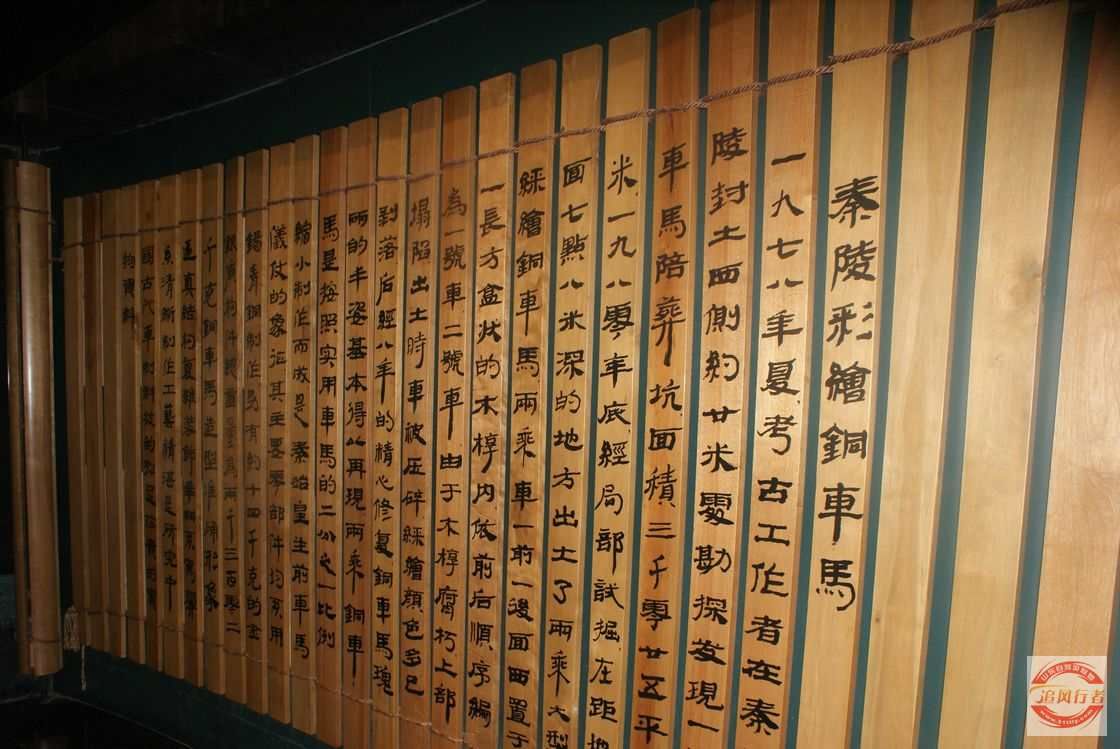 秦陵彩繪銅車馬
一九七八年夏考古工作者在秦
陵封土西側約廿米處勘探发現一
車馬陪葬坑面積三千零廿五平
米一九八零年底經局部試掘在距地
面七點八米深的地方出土了兩乘大型
綵繪銅車馬兩乘車一前一後面西置于
一長方盒狀的木椁内依前后順序編
為一號車二號車由于木椁腐朽上部
塌陷出土時車被压碎綵繪顏色多已
剥落后經八年的精心修复銅車馬瑰
丽的丰姿基本得以再現兩乘銅車
馬是按照实用車馬的二分之一比例
縮小制作而成是秦始皇生前車馬
儀仗的象征其主要零部件均系用
錫青銅制作另有約十四千克的金
銀件總重量為兩千三百零二
千克銅車馬造型准确形象
逼真結构复雜裝飾華麗
清晰制作工藝精湛是研究中
國古代車
資料
追风行者